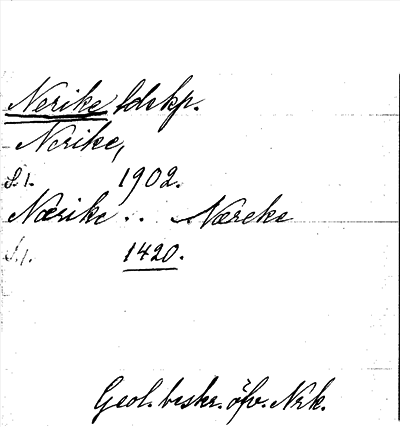 Nerike ldskp.
Nerike,
S. 1. 1902.
Nærike .. Næreke
S. 1. 1420.
Geol. beskr. öfv. Nrk.